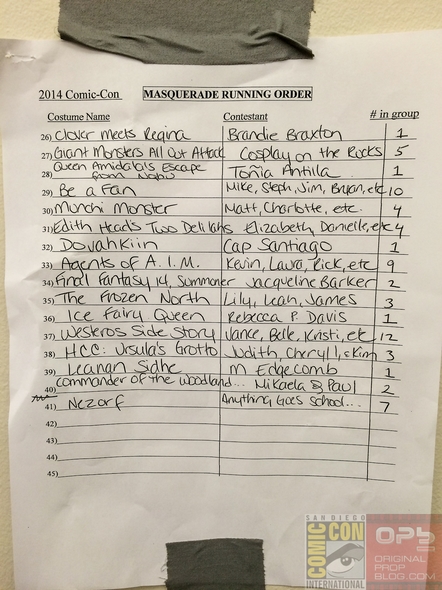 2014 Comic-Con MASQUERADE RUNNING ORDER
Costume Name Contestant # in group
26) Clover meets Regina Brandie Braxton 1
27) Giant Monsters All Out Attack Cosplay on the Rocks 5
28) Queen Amidala's Escape from Naboo Toñia Antilla 1
29) Be a Fan Mike, Steph, Jim, Bryan, etc 10
30) Munchi Monster Matt, Charlotte, etc. 4
31) Edith Head's Two Delilahs Elizabeth, Danielle, etc 4
32) Dovahkiin Cap Santiago 1
33) Agents of A.I.M. Kevin, Laura, Rick, etc 9
34) Final Fantasy 14, Summoner Jacqueline Barker 2
35) The Frozen North Lily, Leah, James 3
36) Ice Fairy Queen Rebecca P. Davis 1
37) Westeros Side Story Vance, Belle, Kristi, etc 12
38) HCC: Ursula's Grotto Judith, Cheryl, & Kim 3
39) Leanan Sidhe M Edgecomb 1
40) Commander of the Woodland... Mikaela & Paul 2
41) Nezorf Anything Goes School... 7
42)
43)
44)
45)
SAN DIEGO
COMIC CON
INTERNATIONAL
OPB
ORIGINAL
PROP
BLOG.COM